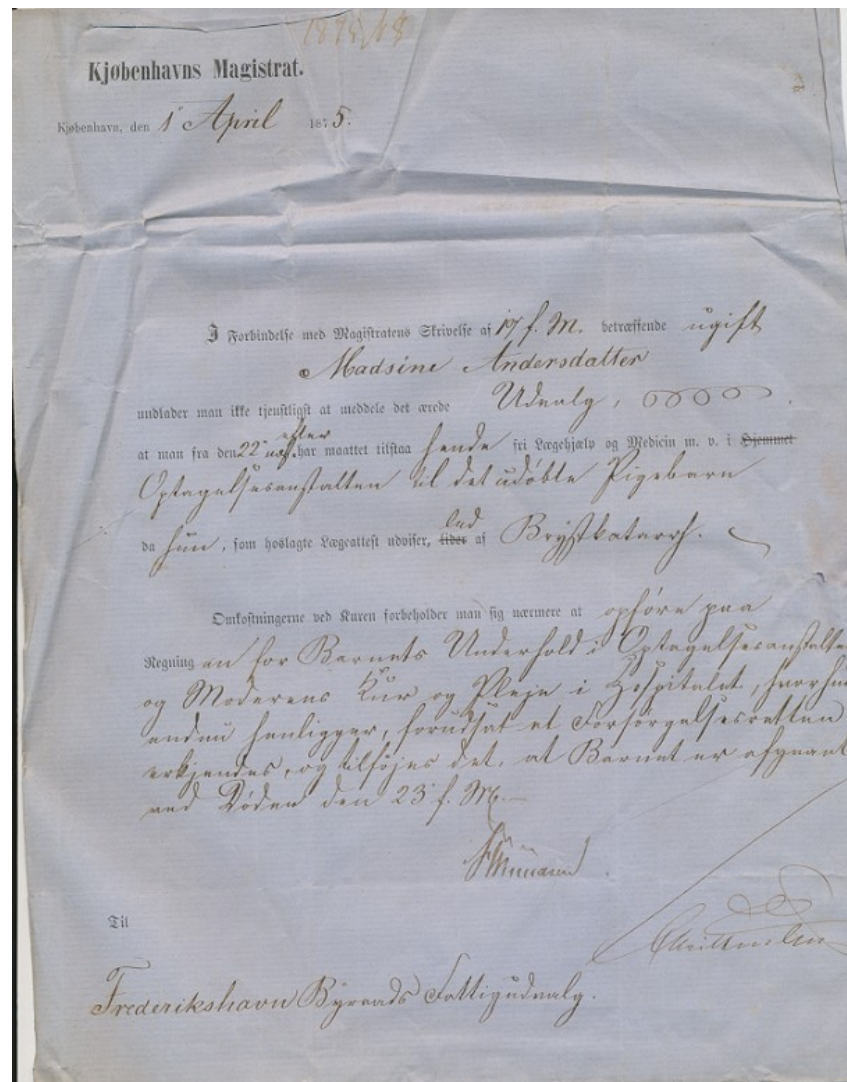 1875/18
Kjøbenhavns Magistrat.
Kjøbenhavn, den 1' April 1875.
I Forbindelse med Magistratens Skrivelse af 17 f. M. betræffende ugift
Madsine Andersdatter
undlader man ikke tjenstligst at meddele det ærede Udvalg,
efter
at man fra den 22' har maattet tilstaa hende fri Lægehjælp og Medicin m. v. i Hjemmet
Optagelsesanstalten til det udøbte Pigebarn
led
da hun, som hoslagte Lægeattest udviser, lider af Brystkatarrh.
Omkostningerne ved Kuren forbeholder man sig nærmere at opføre paa
Regningen for Barnets Underhold i Optagelsesanstalten
og Moderens Kur og Pleje i Hospitalet, hvor hun
endnu henligger, forudsat at Forsørgelsesretten
erkjendes, og tilføjes det, at Barnet er afgaaet
ved Døden den 23' f. M.
Til
Frederikshavn Byraads Fattigudvalg.